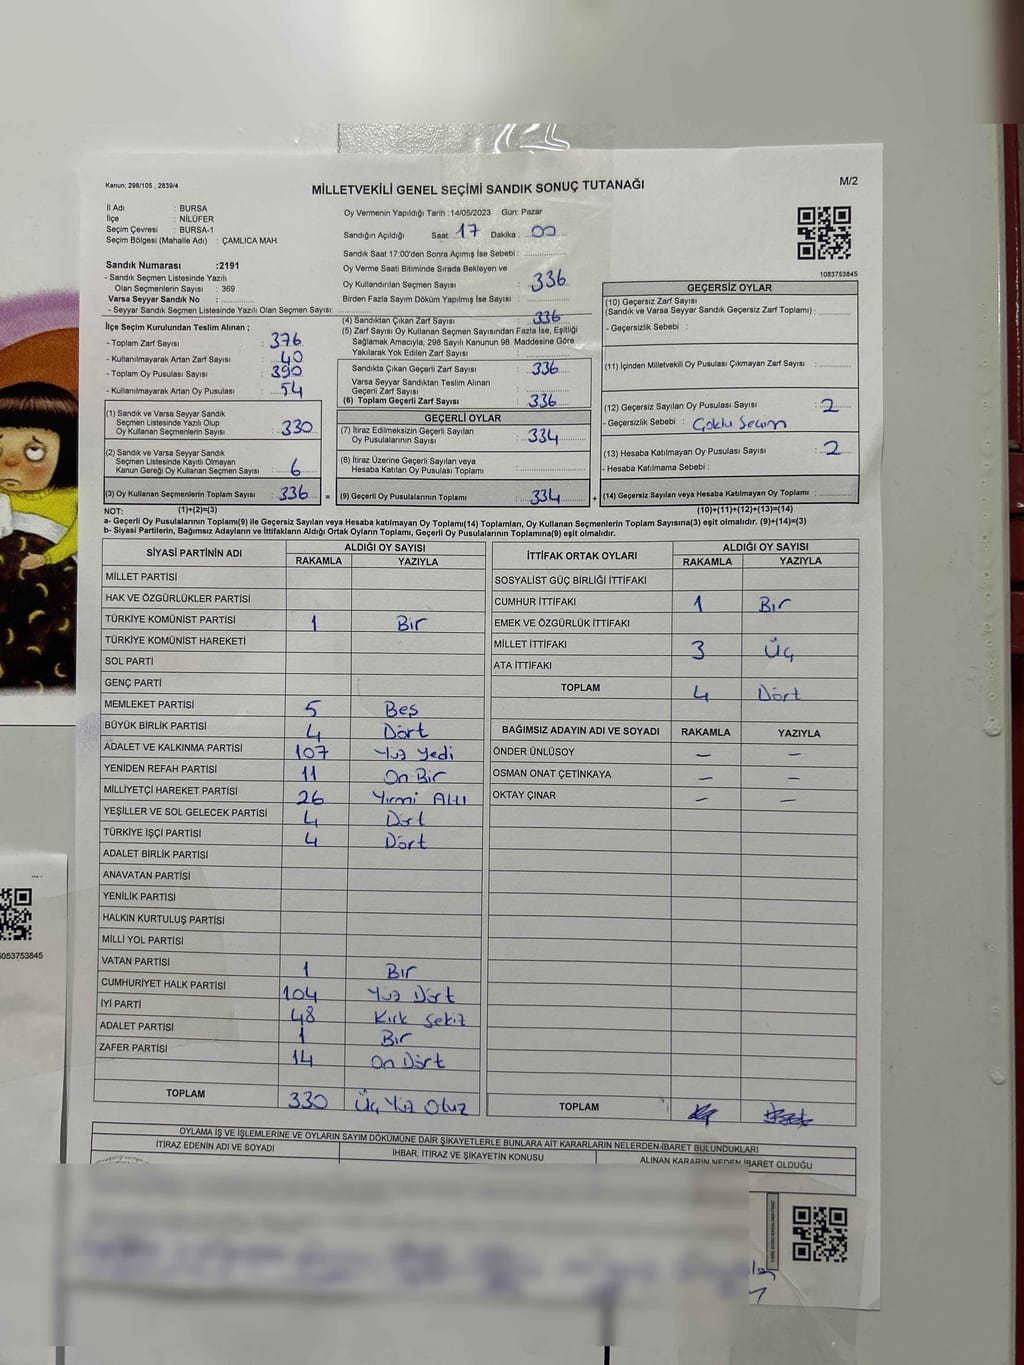 Kanun; 298/105 , 2839/4
MİLLETVEKİLİ GENEL SEÇİMİ SANDIK SONUÇ TUTANAĞI
M/2
İl Adı : BURSA
İlçe : NİLÜFER
Seçim Çevresi : BURSA-1
Seçim Bölgesi (Mahalle Adı) : ÇAMLICA MAH.
Oy Vermenin Yapıldığı Tarih :14/05/2023 Gün: Pazar
Sandığın Açıldığı Saat: 17 Dakika: 00
Sandık Saat 17:00'den Sonra Açımış İse Sebebi :
Oy Verme Saati Bitiminde Sırada Bekleyen ve
Oy Kullandırılan Seçmen Sayısı : 336
Birden Fazla Sayım Döküm Yapılmış İse Sayısı :
1083753845
Sandık Numarası :2191
- Sandık Seçmen Listesinde Yazılı
Olan Seçmenlerin Sayısı : 369
Varsa Seyyar Sandık No :
- Seyyar Sandık Seçmen Listesinde Yazılı Olan Seçmen Sayısı:
İlçe Seçim Kurulundan Teslim Alınan ;
- Toplam Zarf Sayısı : 376
- Kullanılmayarak Artan Zarf Sayısı : 40
- Toplam Oy Pusulası Sayısı : 390
- Kullanılmayarak Artan Oy Pusulası : 54
(1) Sandık ve Varsa Seyyar Sandık
Seçmen Listesinde Yazılı Olup
Oy Kullanan Seçmenlerin Sayısı : 330
(2) Sandık ve Varsa Seyyar Sandık
Seçmen Listesinde Kayıtlı Olmayan
Kanun Gereği Oy Kullanan Seçmen Sayısı : 6
(3) Oy Kullanan Seçmenlerin Toplam Sayısı : 336
(4) Sandıktan Çıkan Zarf Sayısı : 336
(5) Zarf Sayısı Oy Kullanan Seçmen Sayısından Fazla İse, Eşitliği
Sağlamak Amacıyla, 298 Sayılı Kanunun 98. Maddesine Göre
Yakılarak Yok Edilen Zarf Sayısı :
Sandıkta Çıkan Geçerli Zarf Sayısı : 336
Varsa Seyyar Sandıktan Teslim Alınan
Geçerli Zarf Sayısı :
(6) Toplam Geçerli Zarf Sayısı : 336
GEÇERLİ OYLAR
(7) İtiraz Edilmeksizin Geçerli Sayılan
Oy Pusulalarının Sayısı : 334
(8) İtiraz Üzerine Geçerli Sayılan veya
Hesaba Katılan Oy Pusulası Toplamı :
= (9) Geçerli Oy Pusulalarının Toplamı : 334 +
GEÇERSİZ OYLAR
(10) Geçersiz Zarf Sayısı
(Sandık ve Varsa Seyyar Sandık Geçersiz Zarf Toplamı) :
- Geçersizlik Sebebi :
(11) İçinden Milletvekili Oy Pusulası Çıkmayan Zarf Sayısı :
(12) Geçersiz Sayılan Oy Pusulası Sayısı : 2
- Geçersizlik Sebebi : Çoklu Seçim
(13) Hesaba Katılmayan Oy Pusulası Sayısı : 2
- Hesaba Katılmama Sebebi :
(14) Geçersiz Sayılan veya Hesaba Katılmayan Oy Toplamı :
NOT: (1)+(2)=(3)
(10)+(11)+(12)+(13)=(14)
a- Geçerli Oy Pusulalarının Toplamı(9) ile Geçersiz Sayılan veya Hesaba katılmayan Oy Toplamı(14) Toplamları, Oy Kullanan Seçmenlerin Toplam Sayısına(3) eşit olmalıdır. (9)+(14)=(3)
b- Siyasi Partilerin, Bağımsız Adayların ve İttifakların Aldığı Ortak Oyların Toplamı, Geçerli Oy Pusulalarının Toplamına(9) eşit olmalıdır.
SİYASİ PARTİNİN ADI
ALDIĞI OY SAYISI
RAKAMLA YAZIYLA
MİLLET PARTİSİ
HAK VE ÖZGÜRLÜKLER PARTİSİ
TÜRKİYE KOMÜNİST PARTİSİ 1 Bir
TÜRKİYE KOMÜNİST HAREKETİ
SOL PARTİ
GENÇ PARTİ
MEMLEKET PARTİSİ 5 Beş
BÜYÜK BİRLİK PARTİSİ 4 Dört
ADALET VE KALKINMA PARTİSİ 107 Yüz Yedi
YENİDEN REFAH PARTİSİ 11 On Bir
MİLLİYETÇİ HAREKET PARTİSİ 26 Yirmi Altı
YEŞİLLER VE SOL GELECEK PARTİSİ 4 Dört
TÜRKİYE İŞÇİ PARTİSİ 4 Dört
ADALET BİRLİK PARTİSİ
ANAVATAN PARTİSİ
YENİLİK PARTİSİ
HALKIN KURTULUŞ PARTİSİ
MİLLİ YOL PARTİSİ
VATAN PARTİSİ 1 Bir
CUMHURİYET HALK PARTİSİ 104 Yüz Dört
İYİ PARTİ 48 Kırk Sekiz
ADALET PARTİSİ 1 Bir
ZAFER PARTİSİ 14 On Dört
TOPLAM 330 Üç Yüz Otuz
İTTİFAK ORTAK OYLARI
ALDIĞI OY SAYISI
RAKAMLA YAZIYLA
SOSYALİST GÜÇ BİRLİĞİ İTTİFAKI
CUMHUR İTTİFAKI 1 Bir
EMEK VE ÖZGÜRLÜK İTTİFAKI
MİLLET İTTİFAKI 3 Üç
ATA İTTİFAKI
TOPLAM 4 Dört
BAĞIMSIZ ADAYIN ADI VE SOYADI RAKAMLA YAZIYLA
ÖNDER ÜNLÜSOY — —
OSMAN ONAT ÇETİNKAYA — —
OKTAY ÇINAR — —
TOPLAM
OYLAMA İŞ VE İŞLEMLERİNE VE OYLARIN SAYIM DÖKÜMÜNE DAİR ŞİKAYETLERLE BUNLARA AİT KARARLARIN NELERDEN İBARET BULUNDUKLARI
İTİRAZ EDENİN ADI VE SOYADI
İHBAR, İTİRAZ VE ŞİKAYETİN KONUSU
ALINAN KARARIN NEDEN İBARET OLDUĞU
5053753845